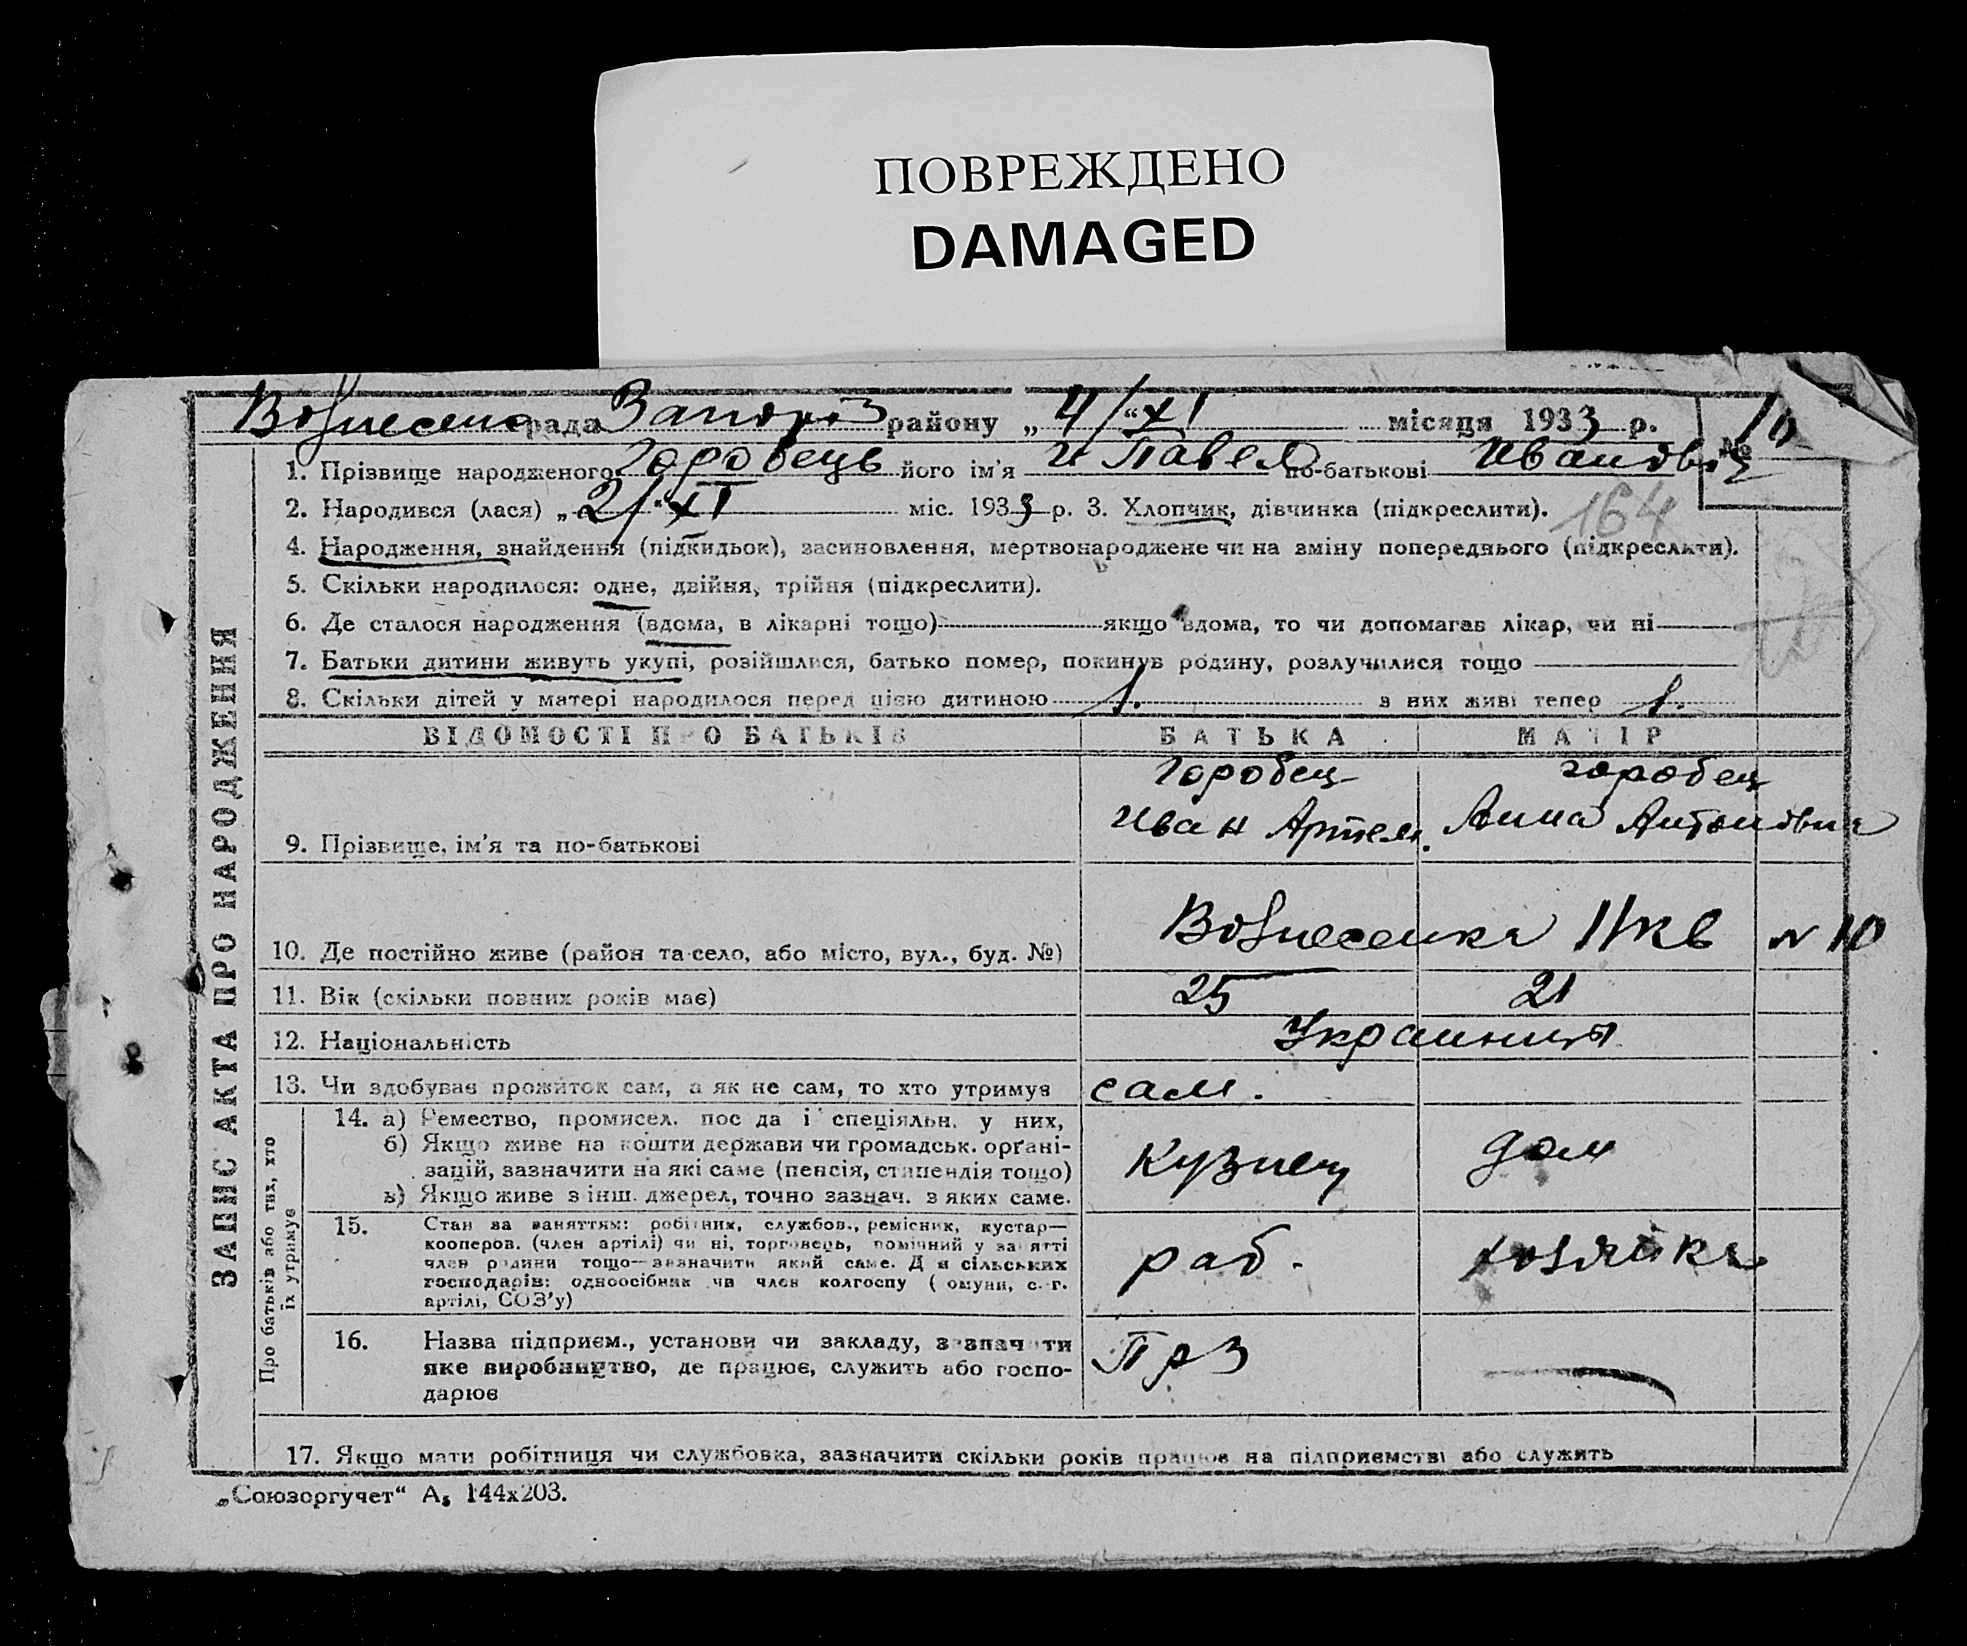 ПОВРЕЖДЕНО
DAMAGED
Вознесенс рада Запоріз району „ 4/“ XI місяця 1933 р. №
1. Прізвище народженого Горовець його ім'я Павел по-батькові Иванович
2. Народився (лася) „ 2/“ XI міс. 1933 р. 3. Хлопчик, дівчинка (підкреслити). 164
4. Народження, знайдення (підкидьок), засиновлення, мертвонароджене чи на зміну попереднього (підкреслити).
5. Скільки народилося: одне, двійня, трійня (підкреслити).
6. Де сталося народження (вдома, в лікарні тощо) якщо вдома, то чи допомагав лікар, чи ні
7. Батьки дитини живуть укупі, розійшлися, батько помер, покинув родину, розлучилися тощо
8. Скільки дітей у матері народилося перед цією дитиною 1. з них живі тепер 1.
ВІДОМОСТІ ПРО БАТЬКІВ БАТЬКА МАТІР
Горобец горобец
Иван Артем. Анна Антоновна
9. Прізвище, ім'я та по-батькові
Вознесенка 11 кв N 10
10. Де постійно живе (район та село, або місто, вул., буд. №)
11. Вік (скільки повних років має) 25 21
12. Національність Украинцы
13. Чи здобуває прожиток сам, а як не сам, то хто утримує сам.
14. а) Ремество, промисел. пос да і спеціяльн. у них,
б) Якщо живе на кошти держави чи громадськ. орґані-
зацій, зазначити на які саме (пенсія, стипендія тощо)
в) Якщо живе з інш. джерел, точно зазнач. з яких саме.
Кузнец дом
15. Стан за заняттям: робітник, службов., ремісник, кустар—
кооперов. (член артілі) чи ні, торговець, помічний у занятті
член родини тощо—зазначити який саме. Для сільських
господарів: одноосібник чи член колгоспу (комуни, с.-г.
артілі, СОЗ'у)
раб. хозяйка
16. Назва підприєм., установи чи закладу, зазначити
яке виробництво, де працює, служить або госпо-
дарює
ПРЗ
17. Якщо мати робітниця чи службовка, зазначити скільки років працює на підприємстві або служить
ЗАПИС АКТА ПРО НАРОДЖЕННЯ
Про батьків або тих, хто
їх утримує
„Союзоргучет“ А₅ 144х203.